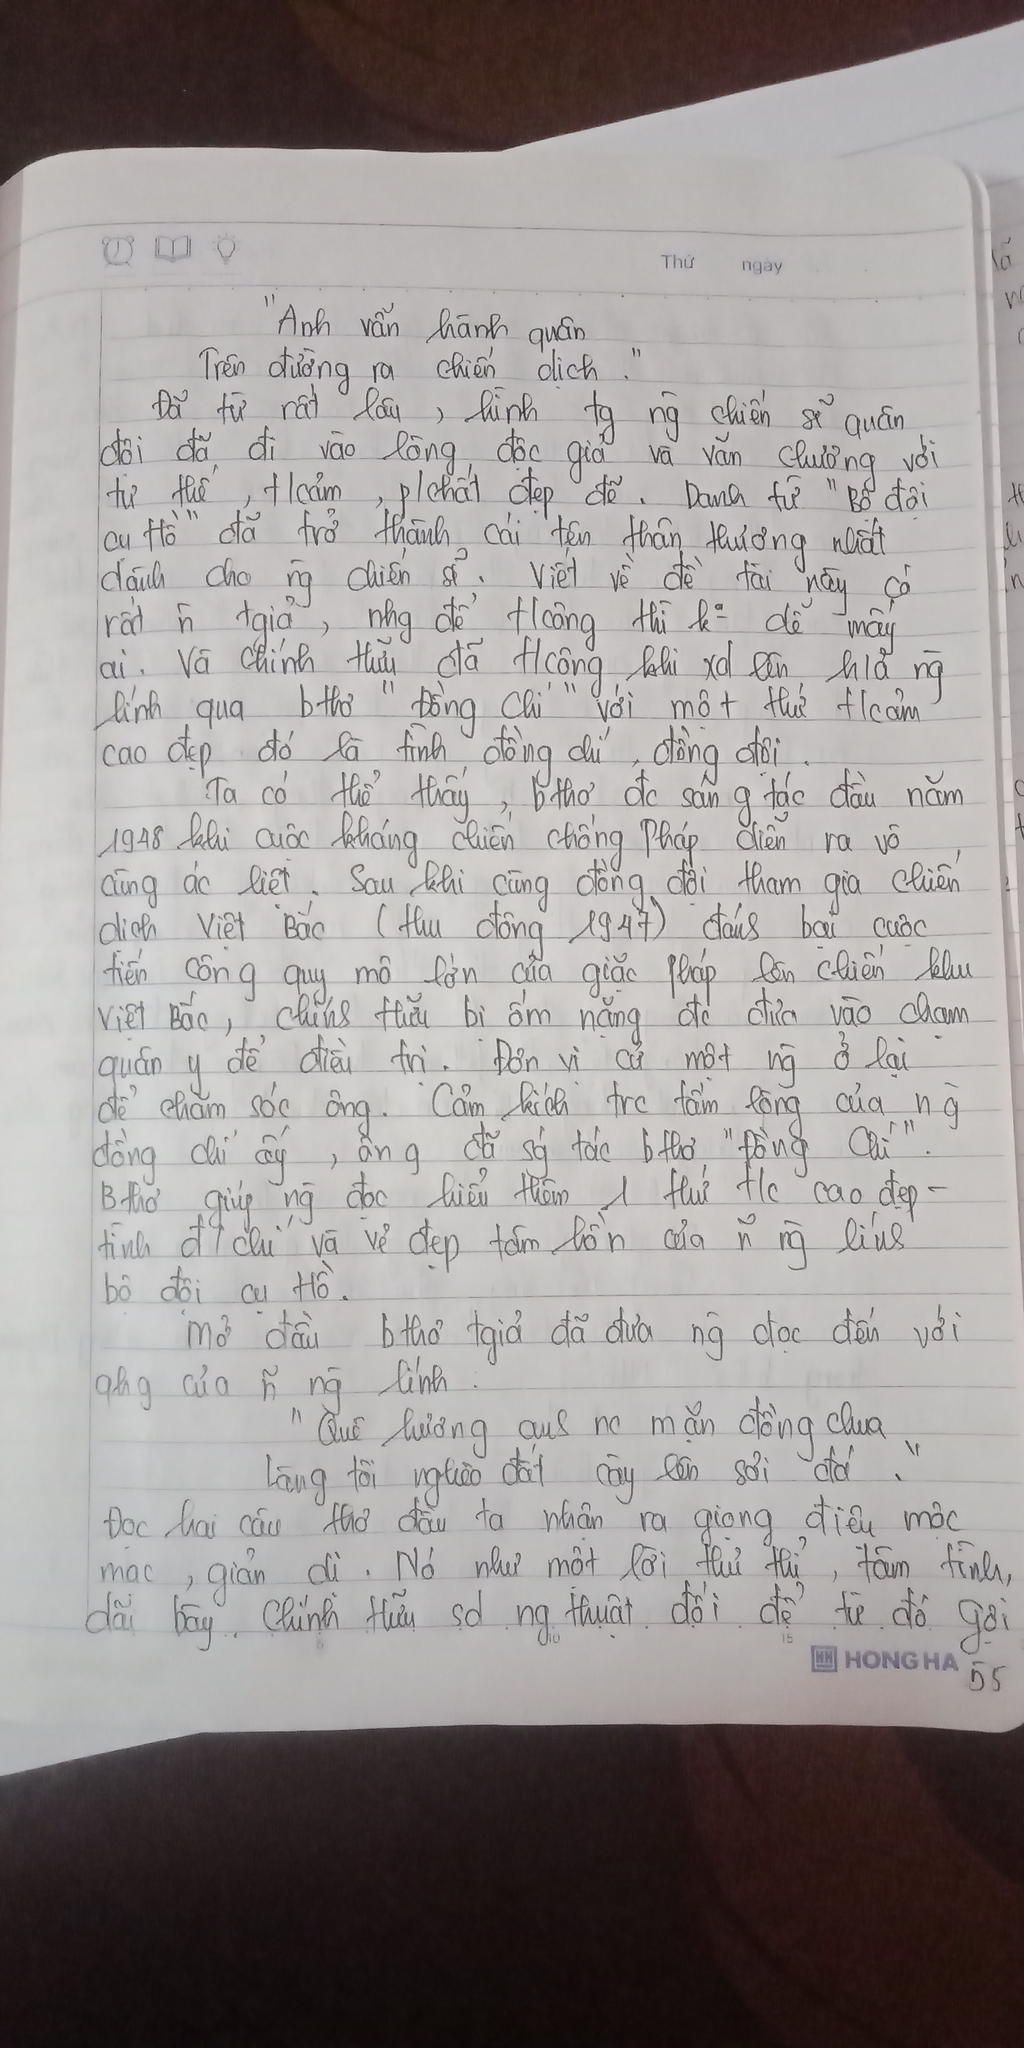 Thứ ngày
"Anh vẫn hành quân
Trên đường ra chiến dịch."
Đã từ rất lâu, hình tg ng chiến sĩ quân
đội đã đi vào lòng độc giả và văn chương với
tư thế, t/cảm, p/chất đẹp đẽ. Danh từ "Bộ đội
cụ Hồ" đã trở thành cái tên thân thương nhất
dành cho ng chiến sĩ. Viết về đề tài này có
rất ñ tgiả, nhg để t/công thì k° dễ mấy
ai. Và Chính Hữu đã t/công khi xd lên h/ả ng
lính qua bthơ "Đồng Chí" với một thứ t/cảm
cao đẹp đó là tình đồng chí, đồng đội.
Ta có thể thấy, bthơ đc sáng tác đầu năm
1948 khi cuộc kháng chiến chống Pháp diễn ra vô
cùng ác liệt. Sau khi cùng đồng đội tham gia chiến
dịch Việt Bắc (thu đông 1947) đánh bại cuộc
tiến công quy mô lớn của giặc Pháp lên chiến khu
Việt Bắc, Chính Hữu bị ốm nặng đc đưa vào chạm
quân y để điều trị. Đơn vị cử một ng ở lại
để chăm sóc ông. Cảm kích trc tấm lòng của ng
đồng chí ấy, ông đã sg tác bthơ "Đồng Chí".
Bthơ giúp ng đọc hiểu thêm 1 thứ t/c cao đẹp-
tình đ/chí và vẻ đẹp tâm hồn của ñ ng lính
bộ đội cụ Hồ.
Mở đầu bthơ tgiả đã đưa ng đọc đến với
qhg của ñ ng lính:
"Quê hương anh nc mặn đồng chua
Làng tôi nghèo đất cày lên sỏi đá."
Đọc hai câu thơ đầu ta nhận ra giọng điệu mộc
mạc, giản dị. Nó như một lời thủ thỉ, tâm tình,
dãi bày. Chính Hữu sd ng thuật đối để từ đó gợi
HONG HA
55